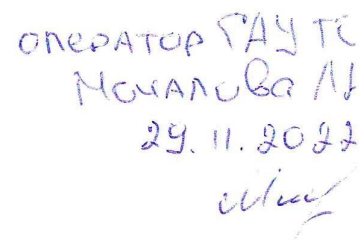 оператор ГАУ ТС
Мочалова Л
29.11.2022